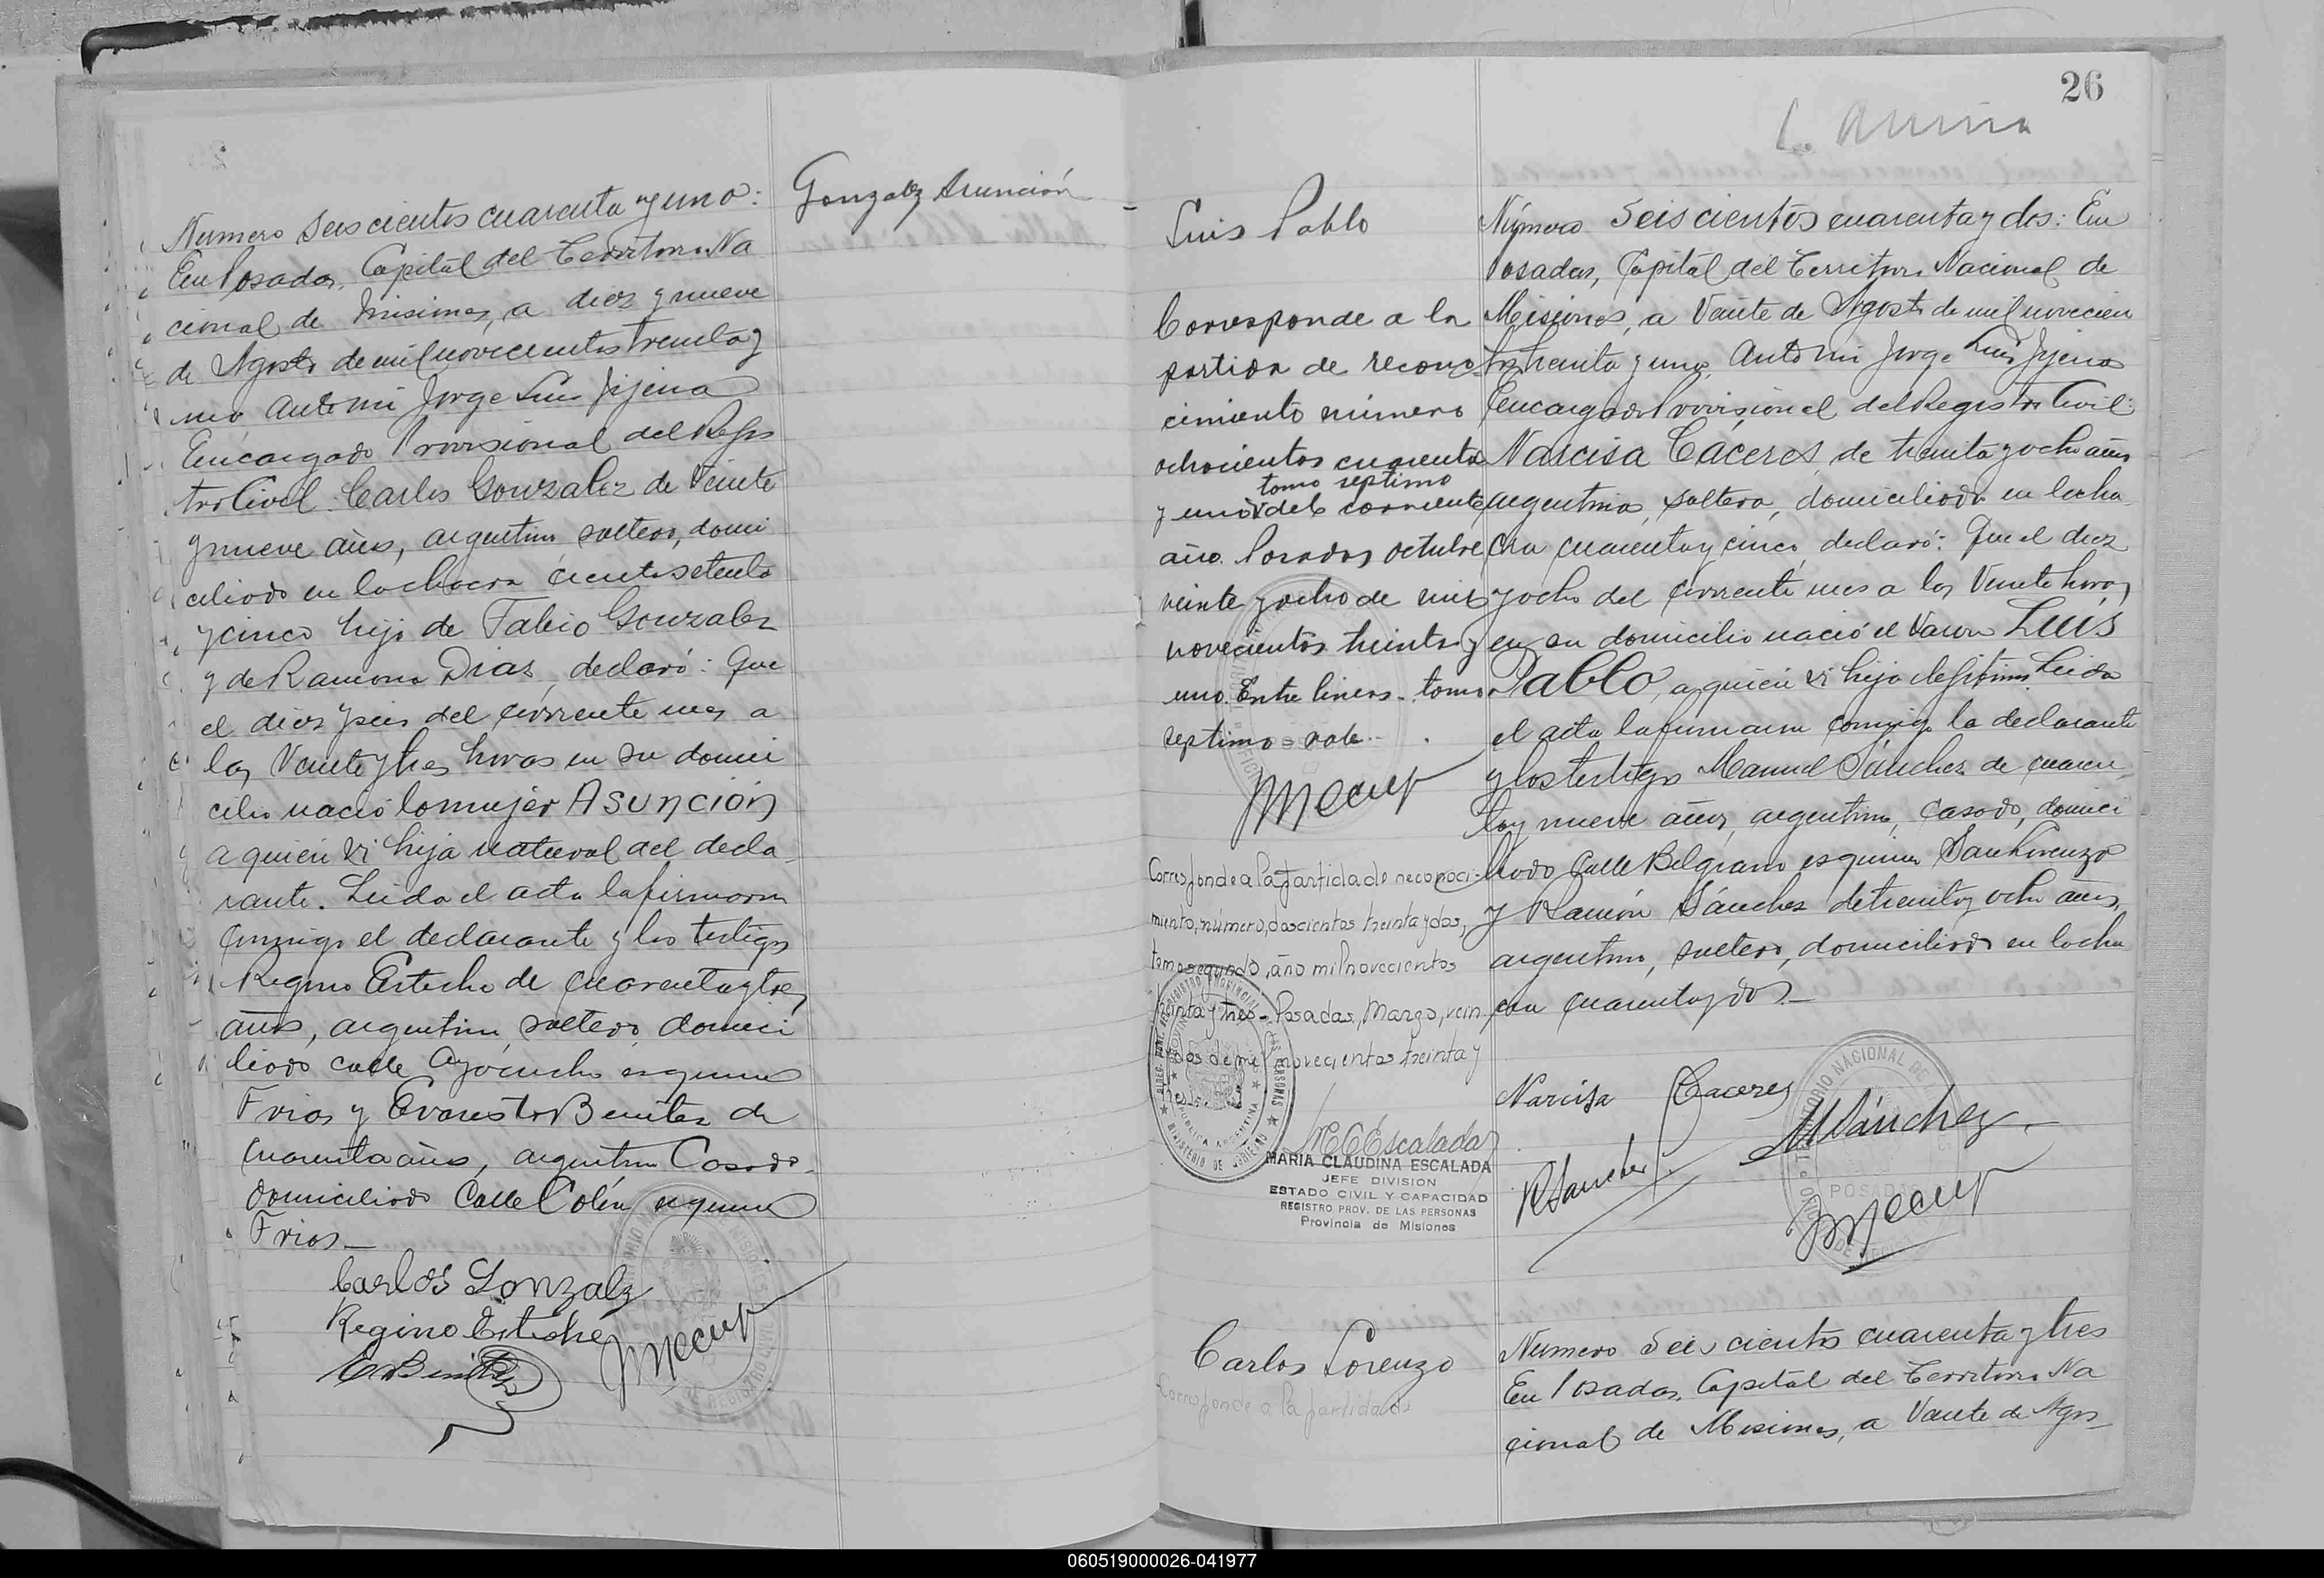 Numero Seiscientos cuarenta y uno:
En Posadas, Capital del Territorio Na
cional de Misiones, a diez y nueve
de Agosto de mil novecientos treinta y
uno Ante mi Jorge Luis Jijena
Encargado Provisional del Regis
tro Civil: Carlos Gonzalez de Veinte
y nueve años, argentino soltero, domi
ciliado en la chacra ciento setenta
y cinco hijo de Fabio Gonzalez
y de Ramona Dias, declaró: Que
el diez y seis del corriente mes a
las Veinte y tres horas en su domi
cilio nació la mujer Asunción
a quien vi hija natural del decla
rante. Leida el acta la firmaron
conmigo el declarante y los testigos
Regino Esteche de cuarenta y tres
años, argentino, soltero, domici
liado calle Ayacucho esquina
Frias y Evaristo Benitez de
cuarenta años, argentino Casado
domiciliado Calle Colón esquina
Frias
Carlos Gonzalz
Regino Esteche
E Benitez
Gonzalez Asunción
26
Luis Pablo
Corresponde a la
partida de recono
cimiento número
ochocientos cuarenta
tomo septimo
y uno del corriente
año. Posadas octubre
veinte y ocho de mil
novecientos treinta y
uno. Entre lineas - tomo
septimo - vale
Corresponde a la partida de reconoci-
miento, número, doscientos treinta y dos,
tomo segundo, año mil novecientos
treinta y tres - Posadas, Marzo, vein
dos de mil novecientos treinta y
tres
MCEscalada
MARIA CLAUDINA ESCALADA
JEFE DIVISION
ESTADO CIVIL Y CAPACIDAD
REGISTRO PROV. DE LAS PERSONAS
Provincia de Misiones
Número Seiscientos cuarenta y dos: En
Posadas, Capital del Territorio Nacional de
Misiones, a Veinte de Agosto de mil novecien
tos treinta y uno, Ante mi Jorge Luis Jijena
Encargado Provisional del Registro Civil:
Narcisa Cáceres, de treinta y ocho años
argentina, soltera, domiciliada en la cha
cra cuarenta y cinco, declaró: Que el diez
y ocho del corriente mes a las Veinte horas
en su domicilio nació el Varon Luis
Pablo, a quien vi hijo ilegitimo Leida
el acta la firmaron conmigo la declarante
y los testigos Manuel Sánchez de cuaren
ta y nueve años, argentino, casado, domici
liado Calle Belgrano esquina San Lorenzo
y Ramón Sánchez de treinta y ocho años,
argentino, soltero, domiciliado en la cha
cra cuarenta y dos.
Narcisa Caceres
M Sánchez
R Sanchez
Carlos Lorenzo
Corresponde a la partida de
Numero Seiscientos cuarenta y tres
En Posadas, Capital del Territorio Na
cional de Misiones, a Veinte de Agos
060519000026-041977